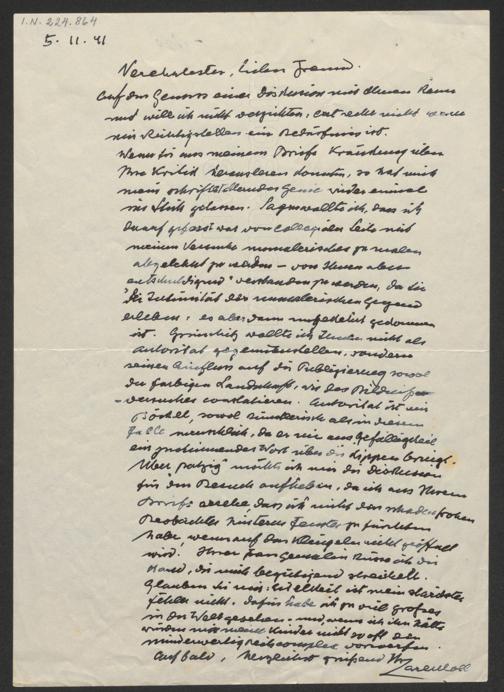 I.N. 224.864
5. 11. 41
Verehrtester, lieber Freund.
Auf den Genuss einer Diskussion mit Ihnen kann
und will ich nicht verzichten, erst recht nicht wenn
ein Richtigstellen ein Bedürfnis ist.
Wenn Sie aus meinem Briefe Kränkung über
Ihre Kritik herauslesen konnten, so hat mich
mein schriftstellerndes Genie wieder einmal
im Stich gelassen. Sagen wollte ich, dass ich
darauf gefasst war von Collegialer Seite mit
meinem Versuche unmalerisches zu malen
abgelehnt zu werden – von Ihnen aber
entschuldigend verstanden zu werden, da Sie
die Intimität der unmalerischen Gegend
erleben, es aber dann umgekehrt gekommen
ist. Grünlich wollte ich Ihnen nicht als
Autorität gegenüberstellen, sondern
seinen Einfluss auf die Publizierung sowol
der farbigen Landschaft, wie des Bildnis
versuches constatieren. Autorität ist mir
Böckel, sowol künstlerisch als in diesem
Falle menschlich, da er nie aus Gefälligkeit
ein zustimmendes Wort über die Lippen bringt.
Über "patzig" möcht ich mir die Diskussion
für den Besuch aufheben, da ich aus Ihrem
Briefe ersehe, dass ich nicht den schadenfrohen
Beobachter hinterm Fenster zu fürchten
habe, wenn auf das Klingeln nicht geöffnet
wird! Ihrer Frau Gemalin küsse ich die
Hand, die mich begütigend streichelt.
Glauben Sie mir: Eitelkeit ist mein stärkster
Fehler nicht, dafür habe ich zu viel grosses
in der Welt gesehen, und wenn ich ihn hätte
würden mir meine Kinder nicht so oft den
minderwertigkeitscomplex vorwerfen.
Auf bald, herzlichst grüßend Ihr